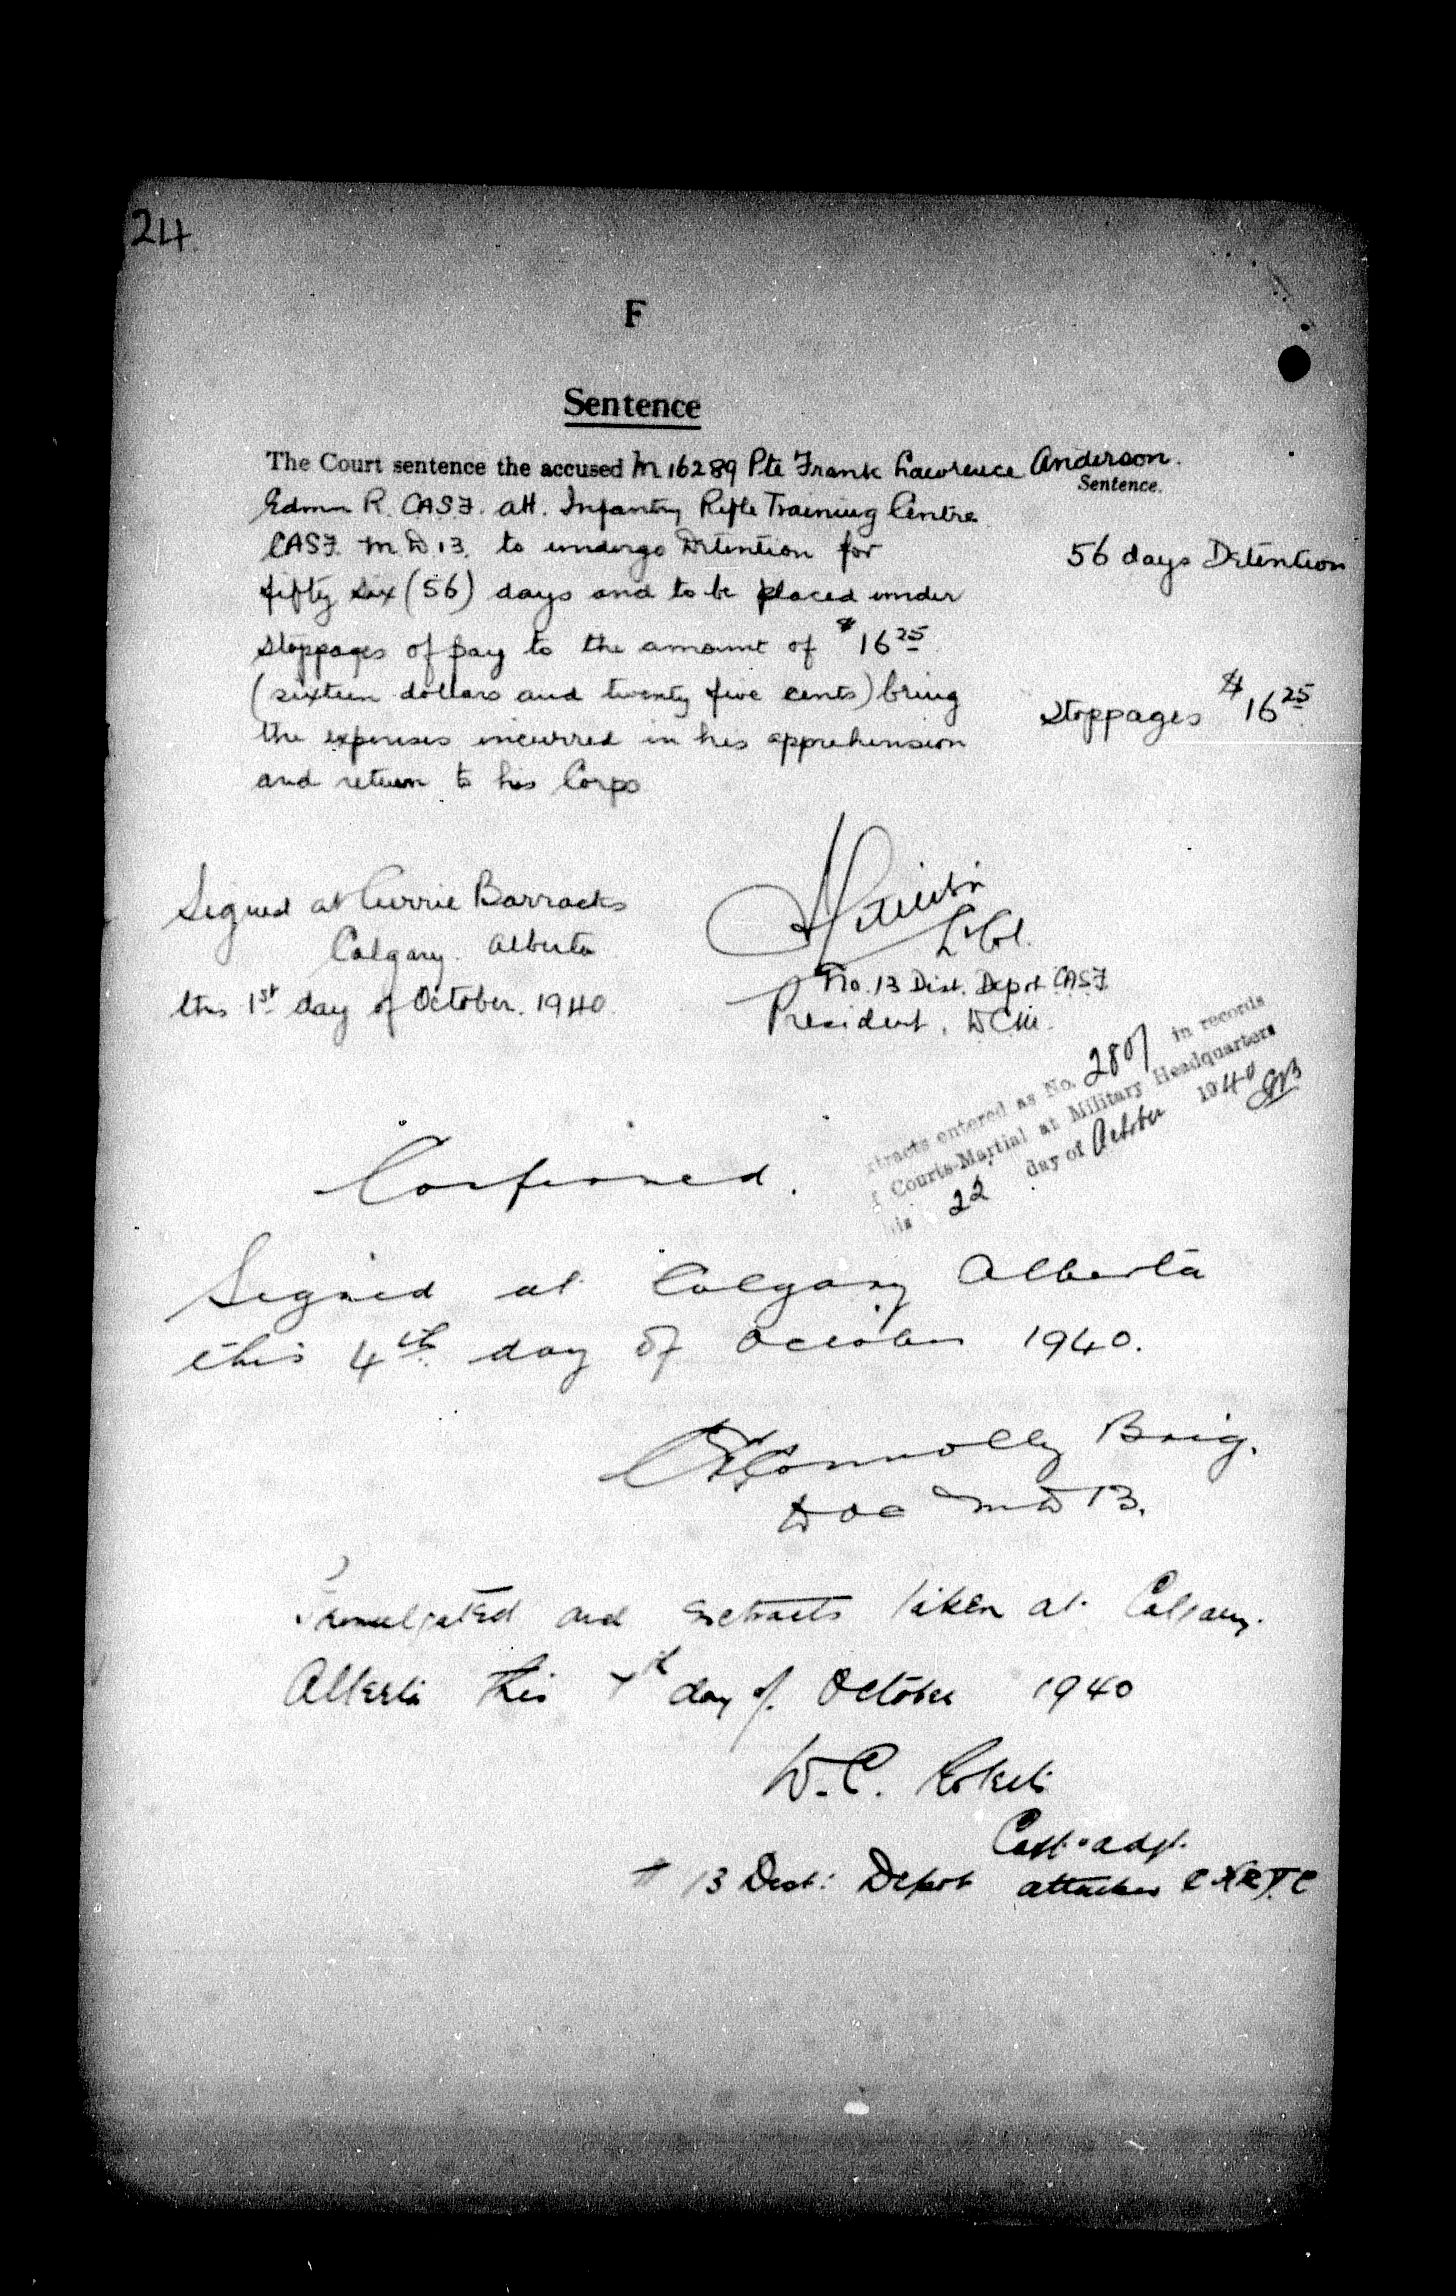 24
F
Sentence
The Court sentence the accused M 16289 Pte Frank Lawrence Anderson.
Sentence.
Edmn R. CASF. att. Infantry Rifle Training Centre
CASF. M D 13. to undergo Detention for
56 days Detention
fifty six (56) days and to be placed under
stoppages of pay to the amount of $16 25
(sixteen dollars and twenty five cents) being
Stoppages $16 25
the expenses incurred in his apprehension
and return to his Corps
Signed at Currie Barracks
Calgary. Alberta
this 1st day of October. 1940.
Lt Col.
No. 13 Dist. Depot CASF
President, DCM.
xtracts entered as No. 2807 in records
f Courts-Martial at Military Headquarters
his 22 day of October 1940
Confirmed.
Signed at Calgary Alberta
this 4th day of October 1940.
Connolly Brig.
DOC MD 13.
Promulgated and extracts taken at Calgary.
Alberta this 7th day of October 1940
W. C.
Capt. adjt.
13 Dist. Depot attached